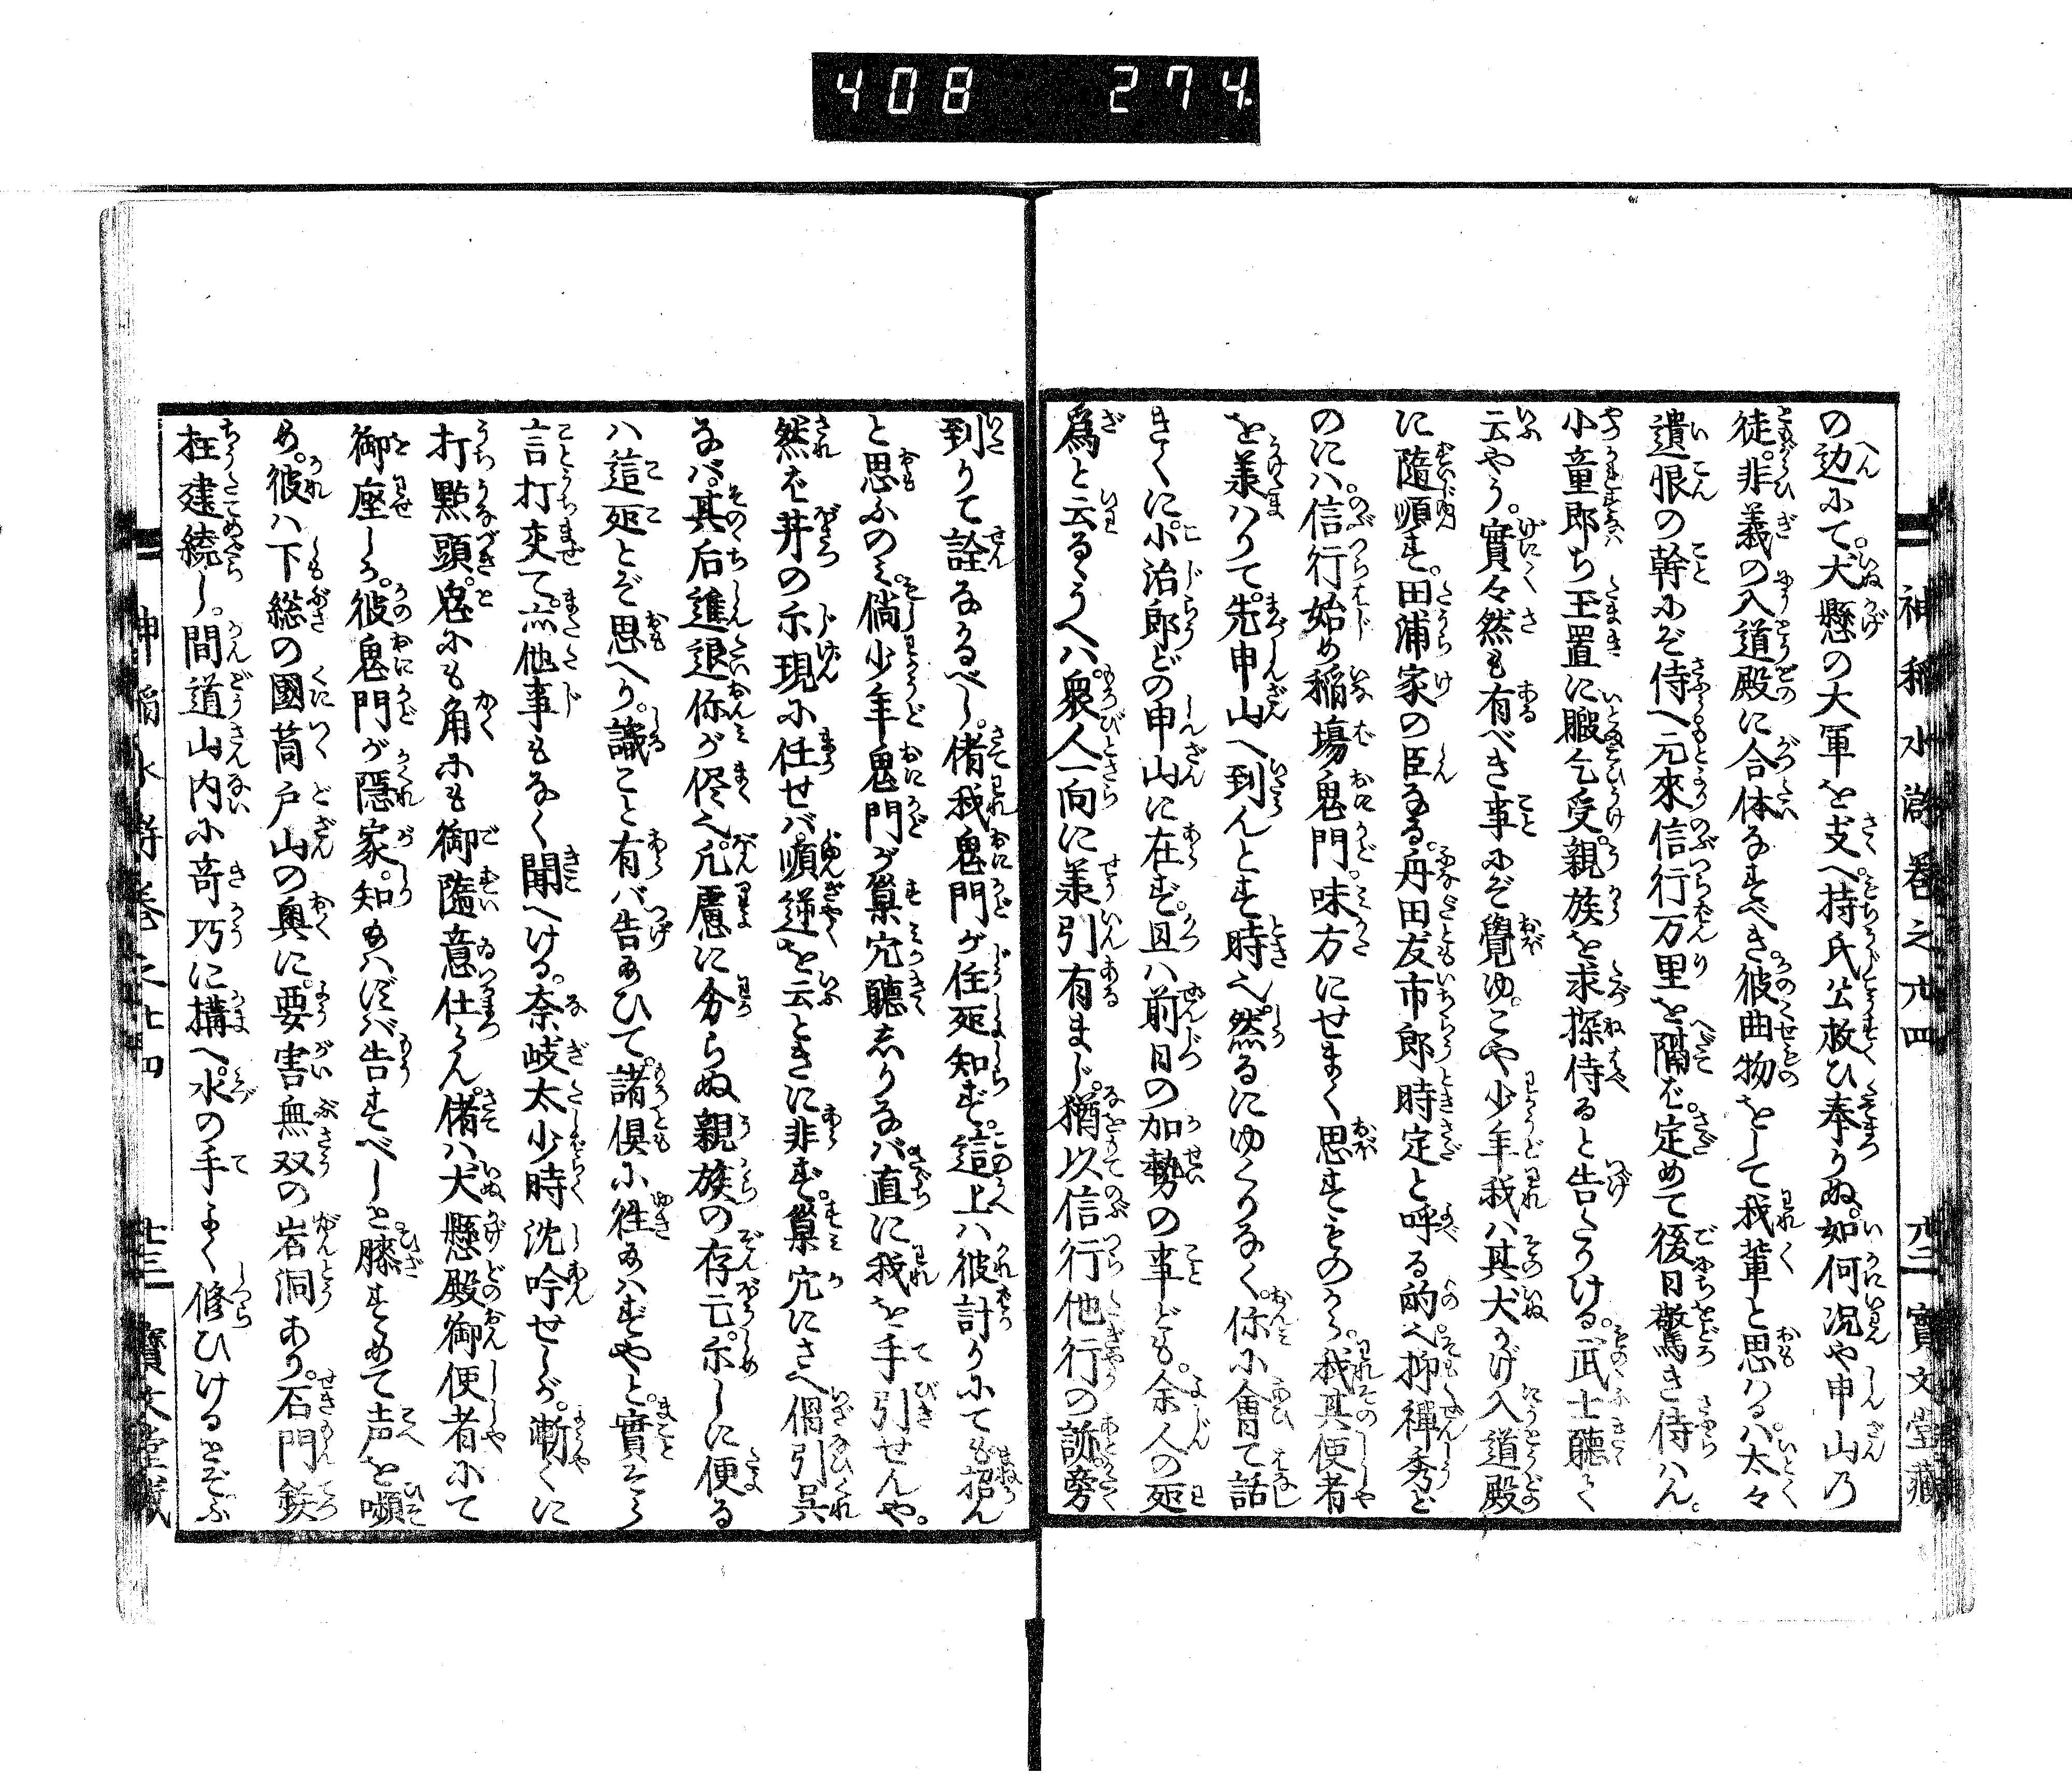 408 274
神稲水滸巻之廿四 廿二 寶文堂藏
の边にて。犬懸の大軍を支へ。持氏公救ひ奉りぬ。如何況や申山乃
徒。非義の入道殿に合体なすべき。彼曲物をして我輩と思へるハ。太々
遺恨の幹にぞ侍へ元來信行万里を隔ど。定めて後日驚き侍ハん。
小童郎ち玉置に暇乞受。親族を求探侍ると告たりける。武士聽く
云やう。實々然も有べき事にぞ覺ゆ。こや少年我ハ其犬かげ入道殿
に隨順す。田浦家の臣なる。舟田友市郎時定と呼る的へ抑禅秀ど
のにハ。信行始め稲場鬼門。味方にせまく思すものから。我其便者
を羕ハりて。先申山へ到んとす時へ。然るにゆくりなく。你に會て話
きくに。小治郎どの申山に在ず。且ハ前日の加勢の事ども。余人の𫝂
爲と云るうへハ。衆人一向に羕引有まじ。猶以信行他行の訴旁
到りて詮なかるべし。偖我鬼門が住𫝂知ず。這上ハ彼計りにても招ん
と思ふのミ。倘少年鬼門が巢穴聽志りなバ直に我を手引せんや。
然ど井の示現に任せバ。順逆を云ときに非ず。巢穴にさへ倡引呉
なバ。其后進退你が侭へ。凢慮に分らぬ親族の存亡。示しに便る
ハ這𫝂とぞ思へり。識こと有バ告あひて。諸倶に徃あハずやと。實そら
言打交て。亦他事もなく聞へける。奈岐太少時沈吟せしが。漸くに
打點頭。兎にも角にも御隨意仕らん。偖ハ犬懸殿御便者にて
御座しか。彼鬼門が隱家。知あハずバ告すべしと。膝すゝめて声を嚬
め。彼ハ下総の國筒戸山の奥に。要害無双の岩洞あり。石門鉄
柱建繞し。間道山内に竒巧に構へ。水の手よく修ひけるとぞぶ
神稲水滸巻之廿四 廿三 寶文堂藏